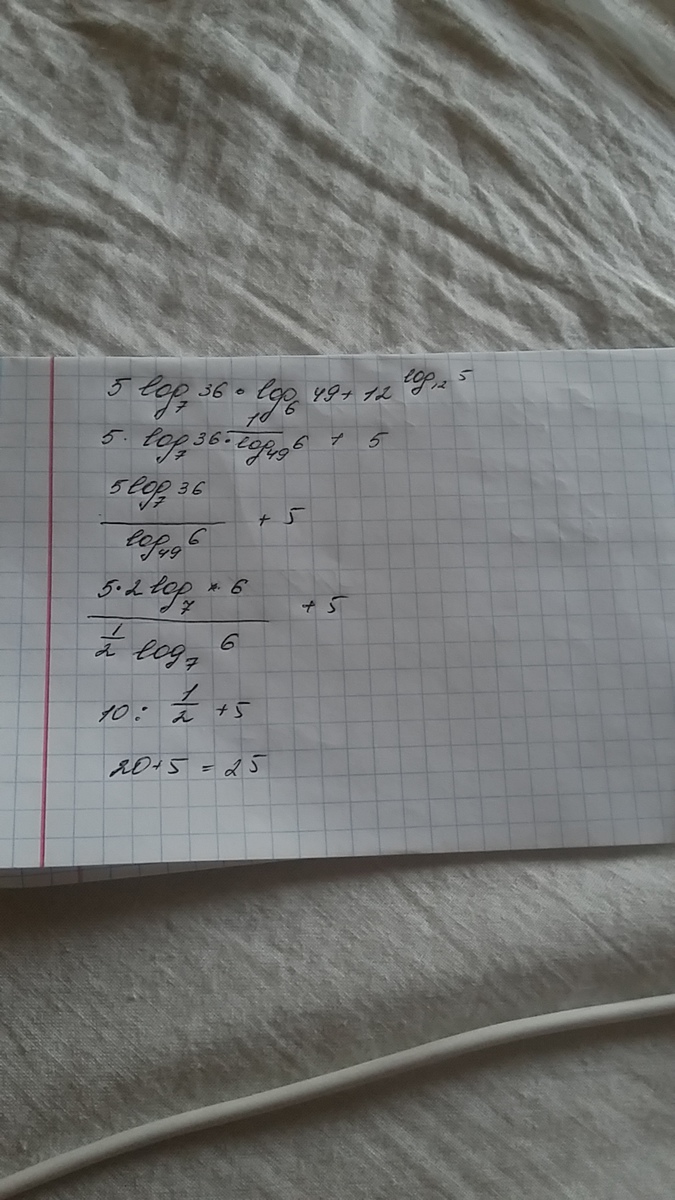 5 log₇ 36 · log₆ 49 + 12^(log₁₂ 5)
5 · log₇ 36 · 1/(log₄₉ 6) + 5
(5 log₇ 36)/(log₄₉ 6) + 5
(5·2 log₇ 6)/(1/2 log₇ 6) + 5
10 : 1/2 + 5
20+5 = 25